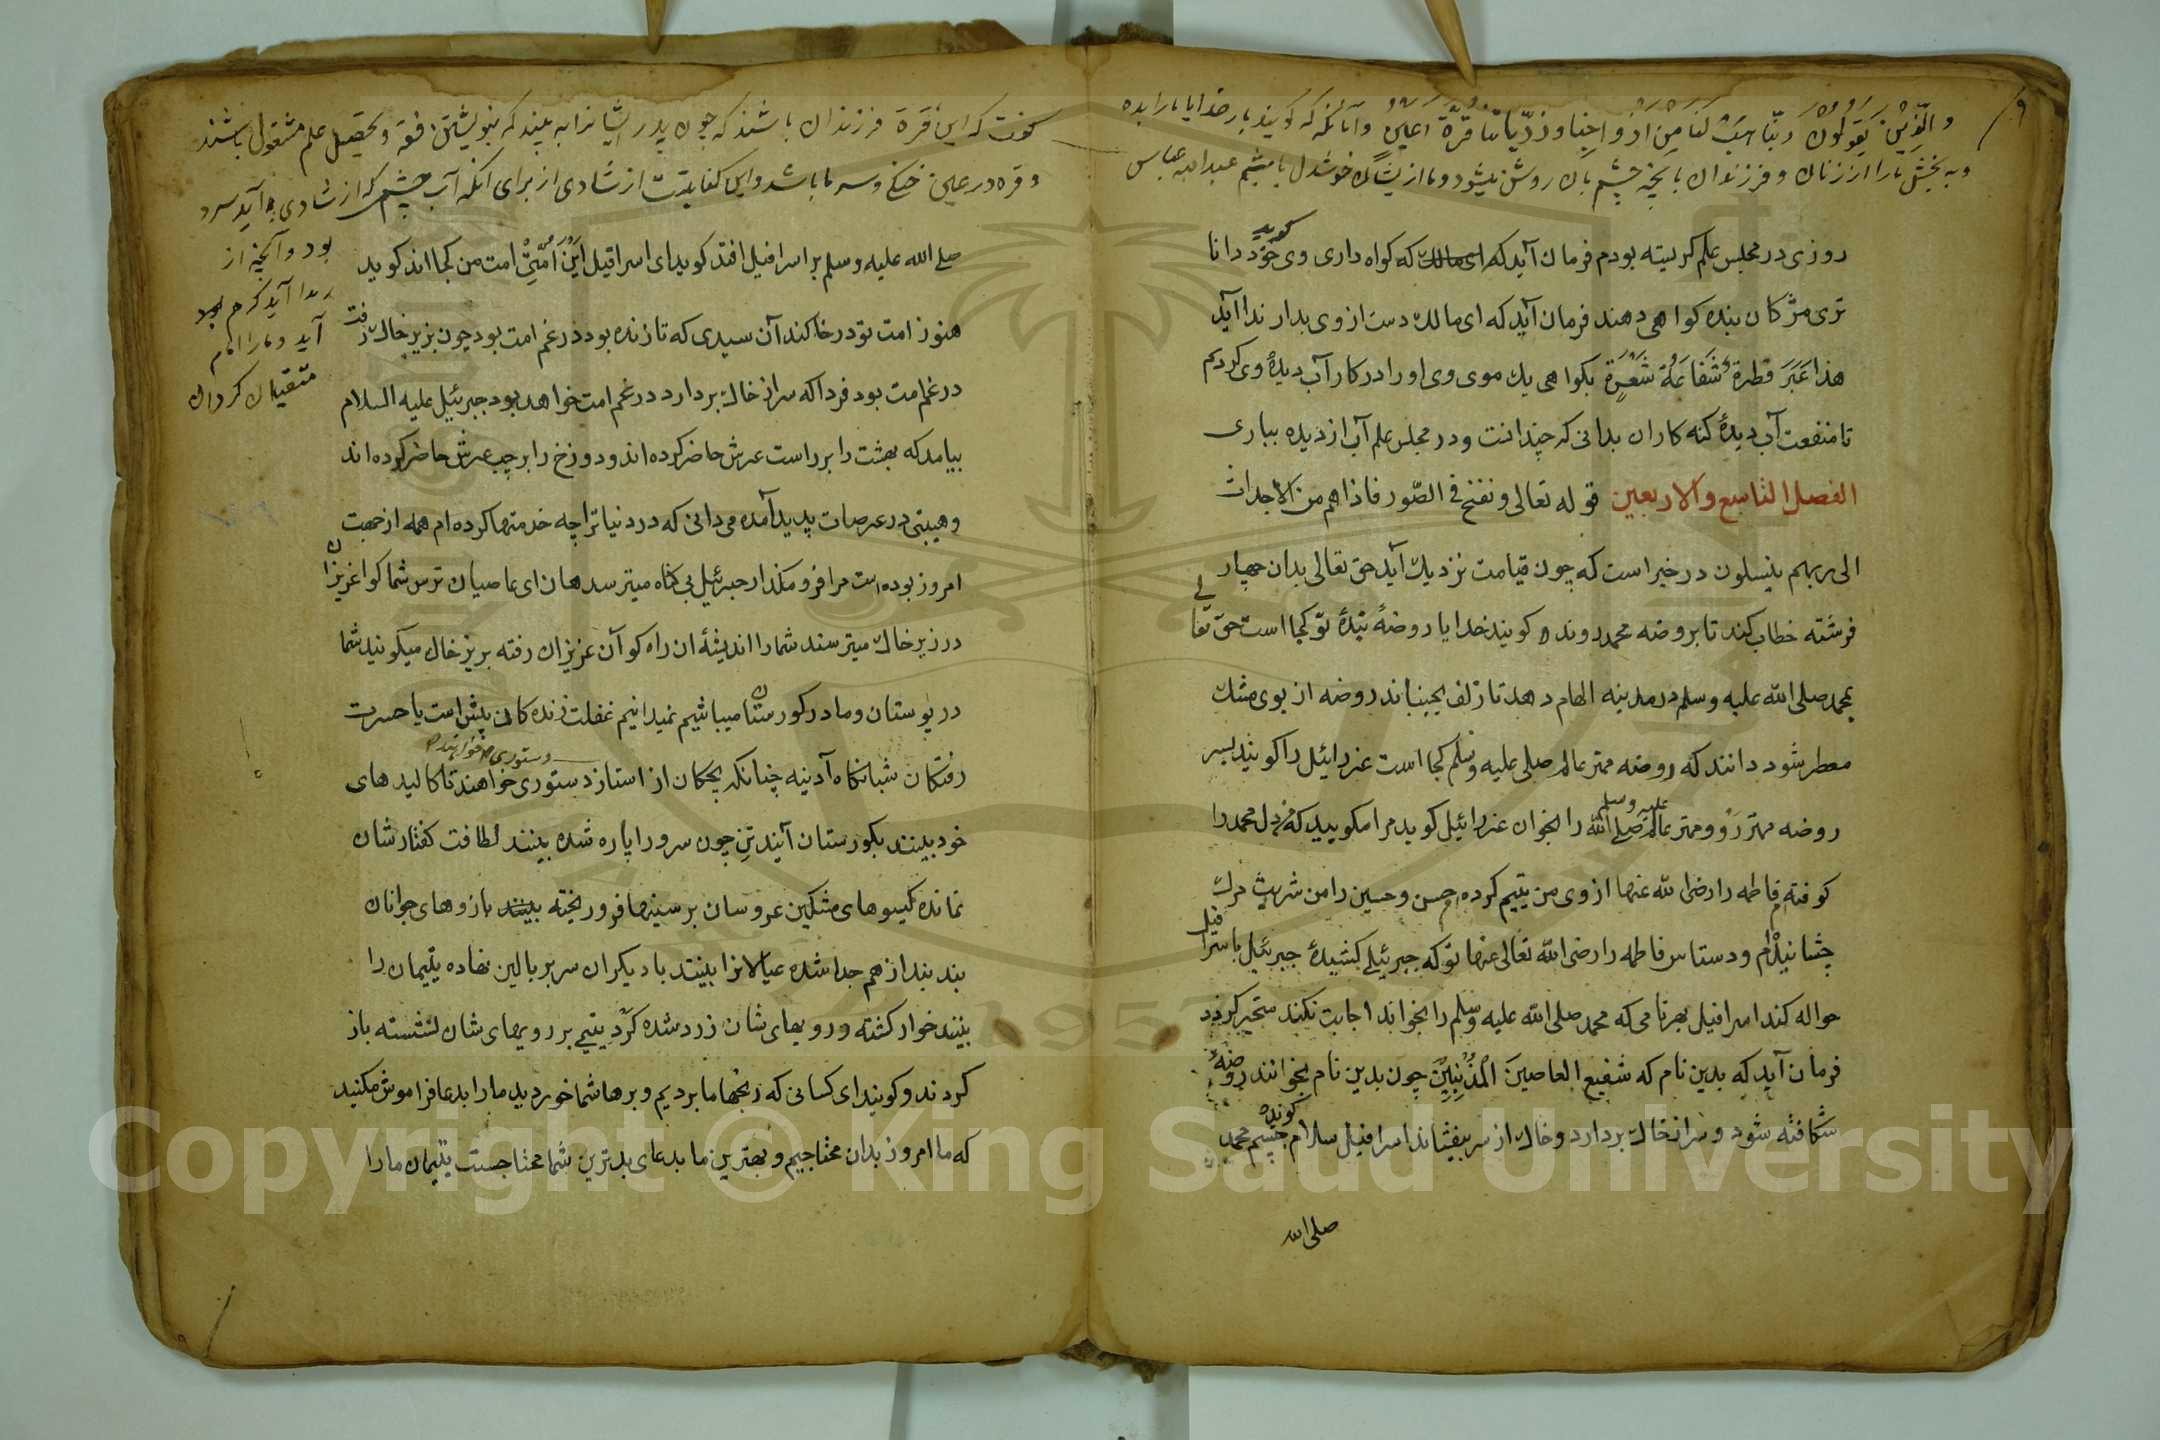 والذین یقولون ربنا هب لنا من ازواجنا وذریاتنا قرة اعین وآنانکه کویند بار خدایا ما را بده
وبه بخش ما را از زنان و فرزندان بآنچه چشم بآن روشن میشود وما از ایشان خوشدل باشیم عبدالله عباس
روزی در مجلس علم کریسته بودم فرمان آید که ای مالک که کواه داری وی کوید خود دانا
تری مژکان بنده کواهی دهند فرمان آید که ای مالک دست از وی بدار ندا آید
هذا عَبَرَ قطرة شفاعة شعرة بکواهی یك موی وی او را در کار آب دیدهٔ وی کردیم
تا منفعت آب دیدهٔ کنه کاران بدانی که چندانست و در مجلس علم آب از دیده بباری
الفصل التاسع والاربعین قوله تعالی ونفخ فی الصور فاذا هم من الاجداث
الی ربهم ینسلون در خبر است که چون قیامت نزدیك آید حق تعالی بدان چهار
فرشته خطاب کند تا بروضه محمد روند و کویند خدایا روضهٔ بندهٔ تو کجا است حق تعالی
بمحمد صلی الله علیه وسلم در مدینه الهام دهد تا زلف بجنباند روضه از بوی مشك
معطر شود دانند که روضه مهتر عالم صلی علیه وسلم کجا است عزرائیل را کویند بسر
روضه مهتر رَو و مهتر عالم صلی الله علیه وسلم را بخوان عزرائیل کوید مرا مکویید که دل محمد را
کوفته ام فاطمه را رضی الله عنها از وی من یتیم کرده ام حسن و حسین را من شربت مرك
چشانیده ام و دستاس فاطمه را رضی الله تعالی عنها تو که جبرئیلی کشیدهٔ جبرئیل باسرافیل
حواله کند اسرافیل بهر نامی که محمد صلی الله علیه وسلم را بخواند اجابت نکند متحیر کردد
فرمان آید که بدین نام که شفیع العاصین المذنبین چون بدین نام بخوانند روضهٔ
شکافته شود و سر از خاك بردارد و خاك از سر بیفشاند اسرافیل سلام کوید چشم محمد
صلی الله
کوفت که این قرة فرزندان باشند که چون پدر ایشانرا به بیند که بنویشتن فقه وتحصیل علم مشغول باشند
و قره در عین خنکی و سرما باشد واین کنایتست از شادی از برای آنکه آب چشم که از شادی بر آید سرد
بود وآنچه از
آید کرم بود
آید وما را امام
متقیان کردان
صلی الله علیه وسلم بر اسرافیل افتد کوید ای اسرافیل اَینَ اُمَّتِی امت من کجا اند کوید
هنوز امت تو در خاك اند آن سیدی که تا زنده بود در غم امت بود چون بزیر خاك رفت
در غم امت بود فردا که سر از خاك بردارد در غم امت خواهد بود جبرئیل علیه السلام
بیامد که بهشت را بر راست عرش حاضر کرده اند و دوزخ را بر چپ عرش حاضر کرده اند
وهیبتی در عرصات پدید آمده می دانی که در دنیا ترا چه خدمتها کرده ام همه از جهت
امروز بوده است مرا فرو مکذار جبرئیل بی کناه میترسد هان ای عاصیان ترس شما کو اعزیزان
در زیر خاك میترسند شما را اندیشهٔ ان راه کو آن عزیزان رفته بزیر خاك میکویند شما
در بوستان وما در کورستان میباشیم نمیدانیم غفلت زنده کان بیش است یا حسرت
رفتکان شبانکاه آدینه چنانکه بچکان از استاز دستوری خواهند تا کالبدهای
دستوری خواهنده
خود بینند بکورستان آیند تنِ چون سرو را پاره شده بینند لطافت کفتار شان
نمانده کیسوهای مشکین عروسان بر سینها فرو ریخته بینند بازوهای جوانان
بند بند از هم جدا شده عیالانرا بینند با دیکران سر بر بالین نهاده یتیمان را
بینند خوار کشته و رویهای شان زرد شده کرد یتیمی بر رویهای شان نشسته باز
کردند و کویند ای کسانی که رنجها ما بردیم و برها شما خوردید ما را بدعا فراموش مکنید
که ما امروز بدان محتاجیم و بهترین ما بدعای بدترین شما محتاجست یتیمان ما را
Copyright © King Saud University